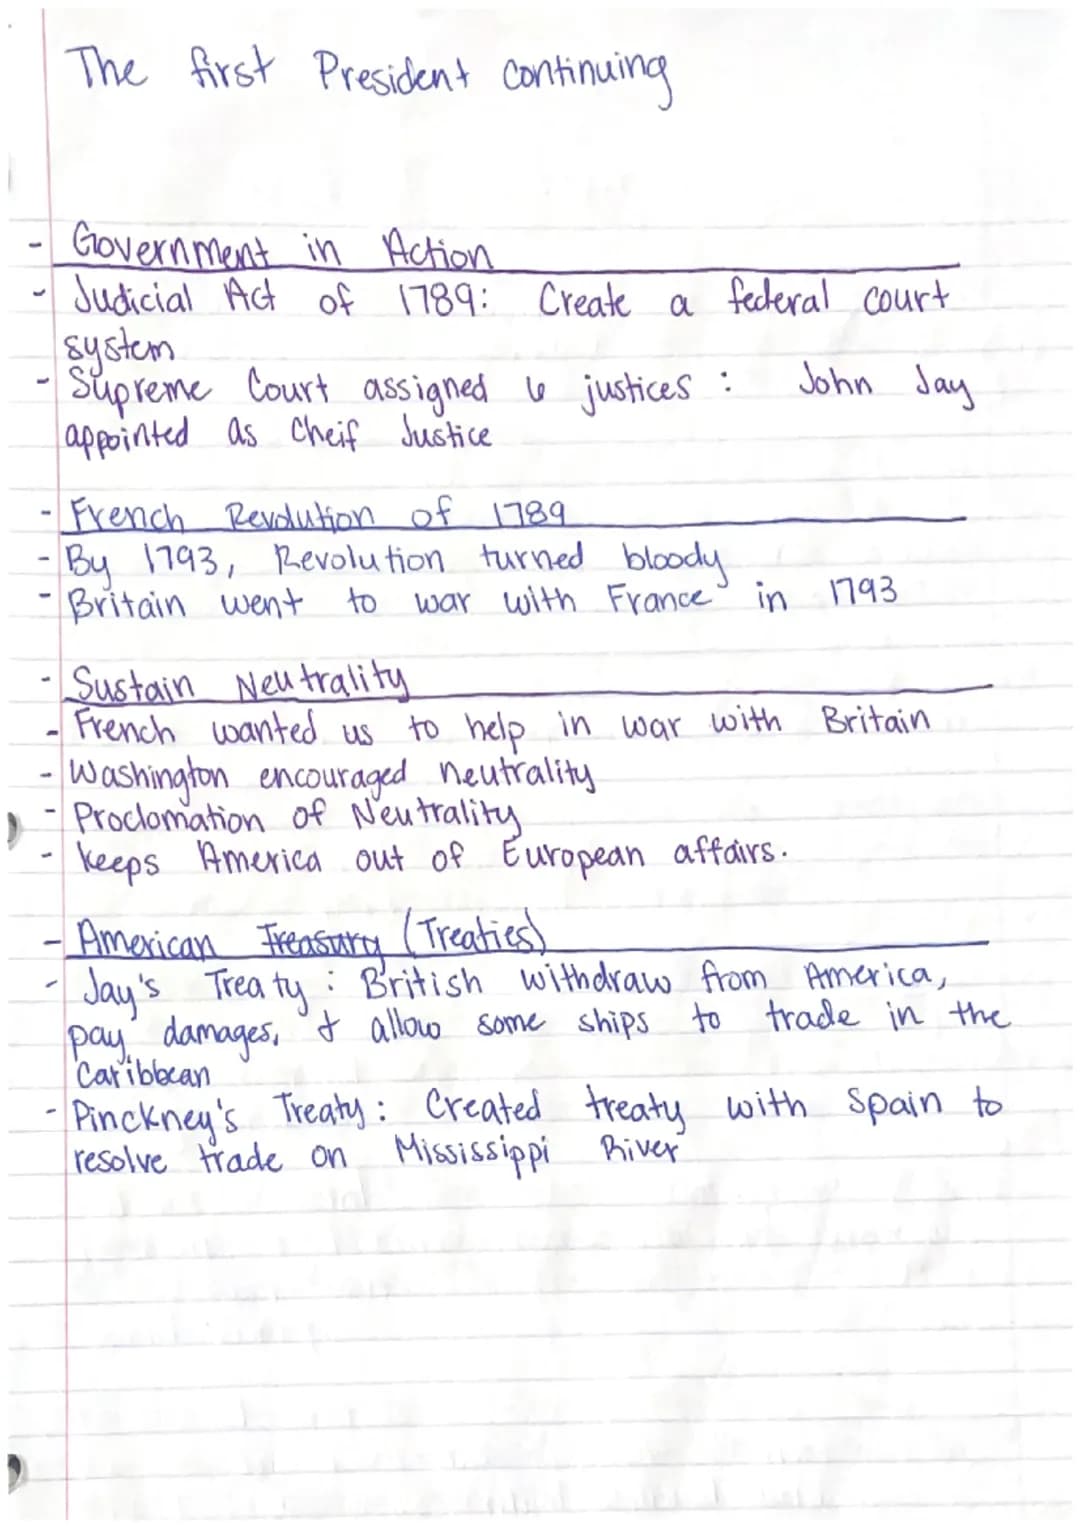 The first President continuing
- Government in Action
- Judicial Act of 1789: Create a federal court
system
- Supreme Court assigned 6 justices : John Jay
appointed as Cheif Justice
- French Revolution of 1789
- By 1793, Revolution turned bloody
- Britain went to war with France in 1793
- Sustain Neutrality
- French wanted us to help in war with Britain
- Washington encouraged neutrality
- Proclomation of Neutrality
- keeps America out of European affairs.
- American Treasury (Treaties)
- Jay's Treaty : British withdraw from America,
pay damages, & allow some ships to trade in the
Caribbean
- Pinckney's Treaty : Created treaty with Spain to
resolve trade on Mississippi River